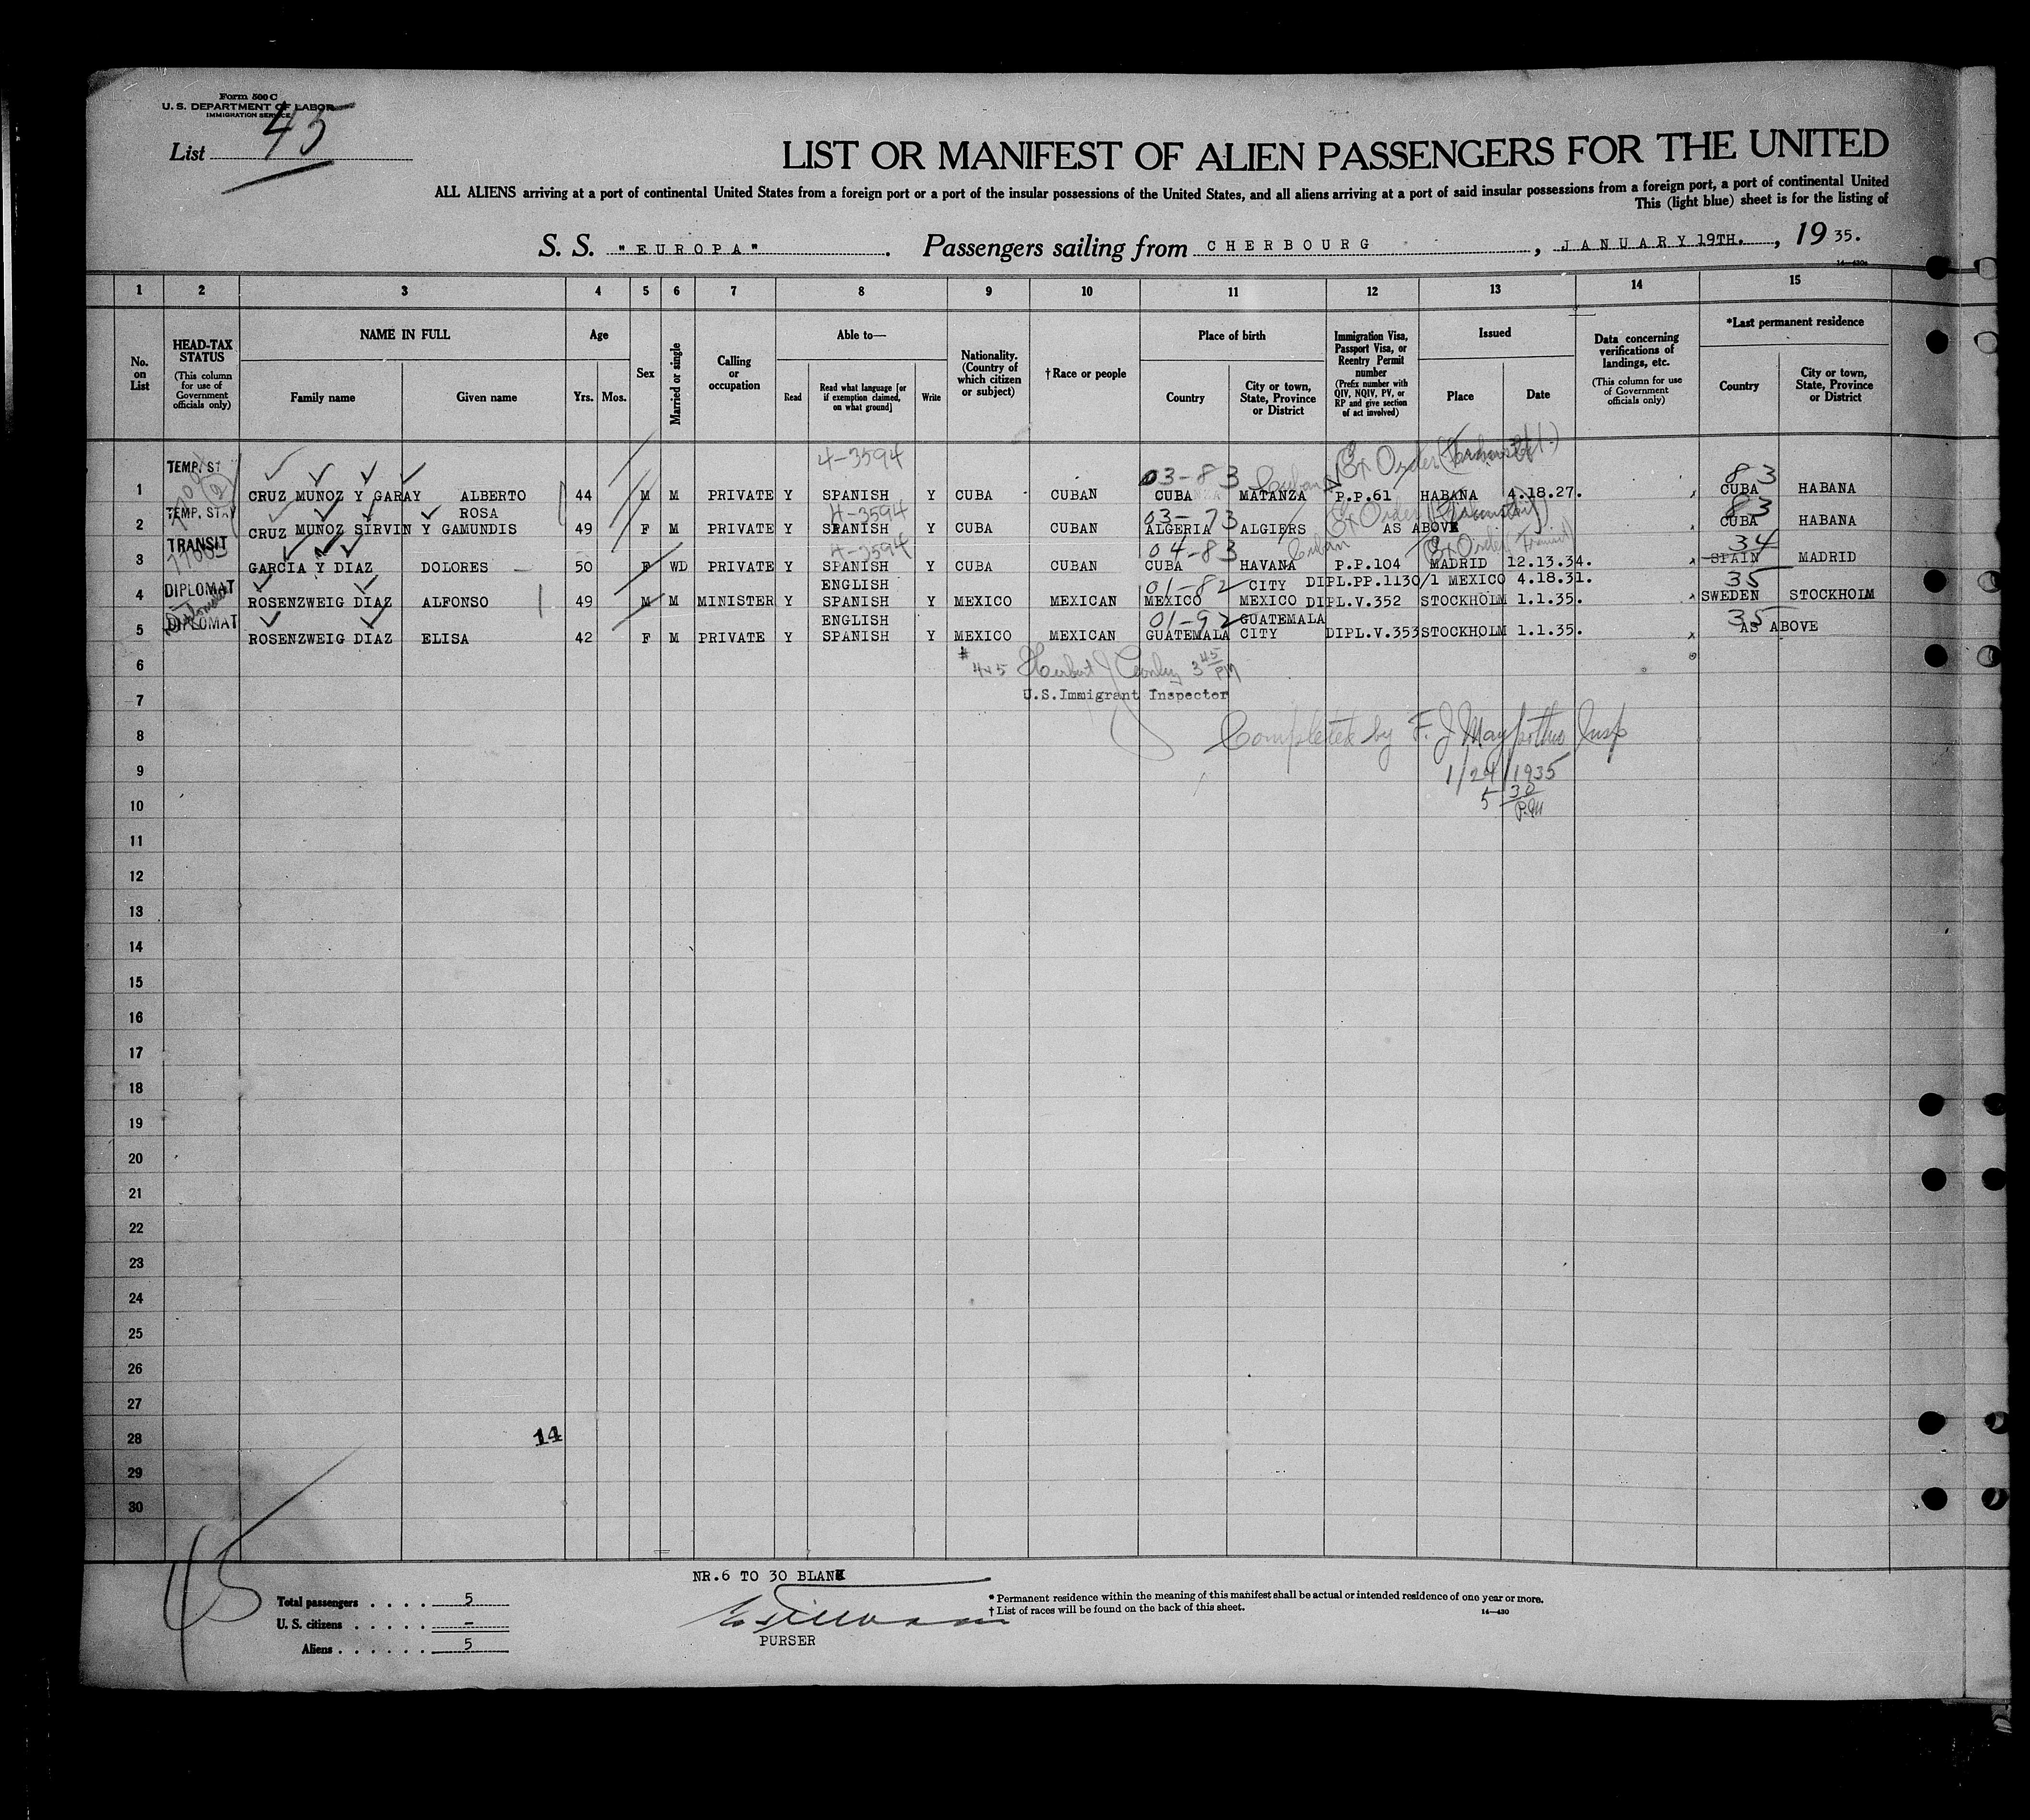 Form 500 C
U. S. DEPARTMENT OF LABOR
IMMIGRATION SERVICE
List 45
LIST OR MANIFEST OF ALIEN PASSENGERS FOR THE UNITED
ALL ALIENS arriving at a port of continental United States from a foreign port or a port of the insular possessions of the United States, and all aliens arriving at a port of said insular possessions from a foreign port, a port of continental United
This (light blue) sheet is for the listing of
S. S. "EUROPA". Passengers sailing from CHERBOURG, JANUARY 19TH., 1935.
14—430a
1 2 3 4 5 6 7 8 9 10 11 12 13 14 15
No. on List
HEAD-TAX STATUS (This column for use of Government officials only)
NAME IN FULL
Family name
Given name
Age
Yrs. Mos.
Sex
Married or single
Calling or occupation
Able to—
Read
Read what language [or if exemption claimed, on what ground]
Write
Nationality. (Country of which citizen or subject)
†Race or people
Place of birth
Country
City or town, State, Province or District
Immigration Visa, Passport Visa, or Reentry Permit number (Prefix number with QIV, NQIV, PV, or RP and give section of act involved)
Issued
Place
Date
Data concerning verifications of landings, etc. (This column for use of Government officials only)
*Last permanent residence
Country
City or town, State, Province or District
TEMP. ST 4-3594 03-83 Cuban Ex Order 83
1 CRUZ MUNOZ Y GARAY ALBERTO 44 M M PRIVATE Y SPANISH Y CUBA CUBAN CUBA MATANZA P.P.61 HABANA 4.18.27. CUBA HABANA
TEMP. STAY ROSA 4-3594 03-73 Ex Order 83
2 CRUZ MUÑOZ SIRVIN Y GAMUNDIS 49 F M PRIVATE Y SPANISH Y CUBA CUBAN ALGERIA ALGIERS AS ABOVE CUBA HABANA
TRANSIT 4-3594 04-83 Cuban Ex Order (Transit) 34
3 GARCIA Y DIAZ DOLORES 50 F WD PRIVATE Y SPANISH Y CUBA CUBAN CUBA HAVANA P.P.104 MADRID 12.13.34. SPAIN MADRID
DIPLOMAT ENGLISH 01-82 CITY DIPL.PP.1130/1 MEXICO 4.18.31. 35
4 ROSENZWEIG DIAZ ALFONSO 49 M M MINISTER Y SPANISH Y MEXICO MEXICAN MEXICO MEXICO DIPL.V.352 STOCKHOLM 1.1.35. SWEDEN STOCKHOLM
DIPLOMAT ENGLISH 01-92 GUATEMALA 35
5 ROSENZWEIG DIAZ ELISA 42 F M PRIVATE Y SPANISH Y MEXICO MEXICAN GUATEMALA CITY DIPL.V.353 STOCKHOLM 1.1.35. AS ABOVE
6 Herbert J 3 45 PM
7 U.S.Immigrant Inspector
8 Completed by F. J. Insp
9 1/24/1935
10 5 30 P.M
11
12
13
14
15
16
17
18
19
20
21
22
23
24
25
26
27
28 14
29
30
45
NR.6 TO 30 BLANK
Total passengers . . . . 5
U. S. citizens . . . . . –
Aliens . . . . . . 5
PURSER
* Permanent residence within the meaning of this manifest shall be actual or intended residence of one year or more.
† List of races will be found on the back of this sheet.
14—430